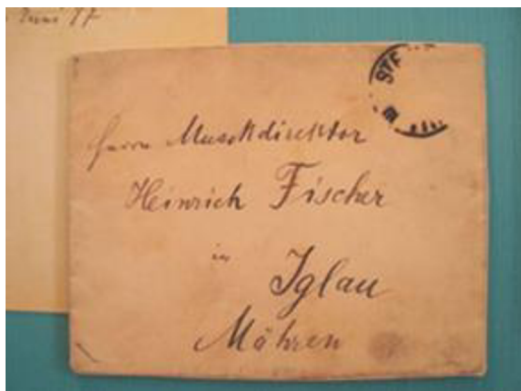 Juni 97
STE
Herrn Musikdirektor
Heinrich Fischer
in
Iglau
Mähren